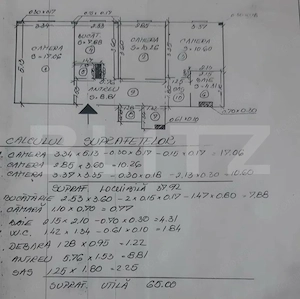 3.34
2.85
3.37
CAMERA
S=17.06
BUCĂT.
S=7.88
CAMERA
S=10.26
CAMERA
S=10.60
ANTREU
S=8.81
BAIE
CALCULUL SUPRAFEȚELOR
CAMERA 3.34 x 5.13 - 0.30 x 0.17 - 0.15 x 0.17 = 17.06
CAMERA 2.85 x 3.60 = 10.26
CAMERA 3.37 x 3.35 - 0.30 x 0.18 - 2.13 x 0.30 = 10.60
SUPRAF. LOCUIBILĂ 37.92
BUCĂTĂRIE 2.53 x 3.60 - 2 x 0.15 x 0.17 - 1.47 x 0.80 = 7.88
CĂMARĂ 1.10 x 0.70 = 0.77
BAIE 2.15 x 2.10 - 0.70 x 0.30 = 4.31
W.C. 1.42 x 1.34 - 0.61 x 0.10 = 1.84
DEBARA 1.28 x 0.95 = 1.22
ANTREU 5.76 x 1.53 = 8.81
SAS 1.25 x 1.80 = 2.25
SUPRAF. UTILĂ 65.00